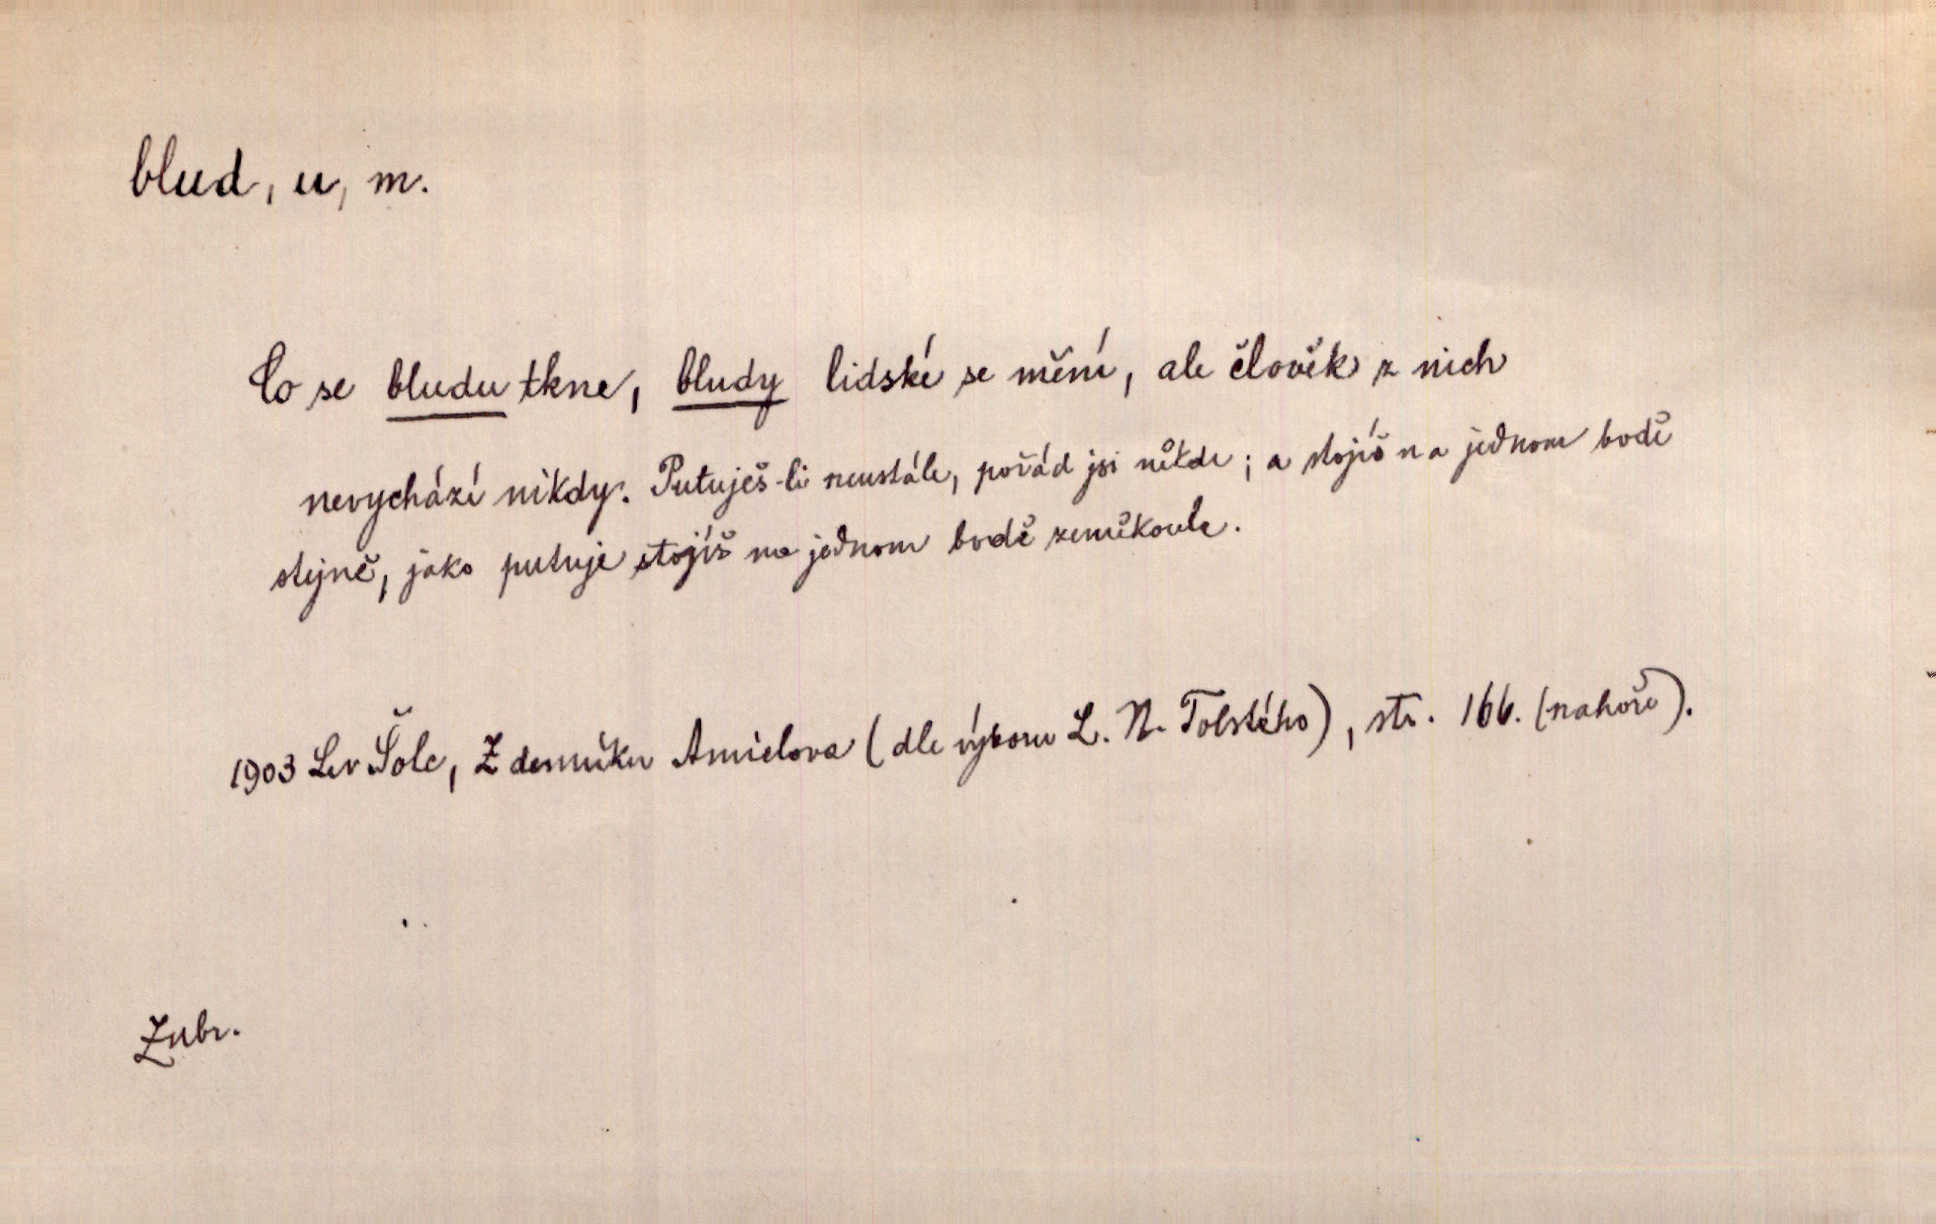 blud, u, m.
Co se bludu tkne, bludy lidské se mění, ale člověk z nich
nevychází nikdy. Putuješ-li neustále, pořád jsi někde; a stojíš na jednom bodě
stejně, jako putuje stojíš na jednom bodě zeměkoule.
1903 Lev Šolc, Z denníku Amielova (dle výboru L. N. Tolstého), str. 166. (nahoře).
Zubr.